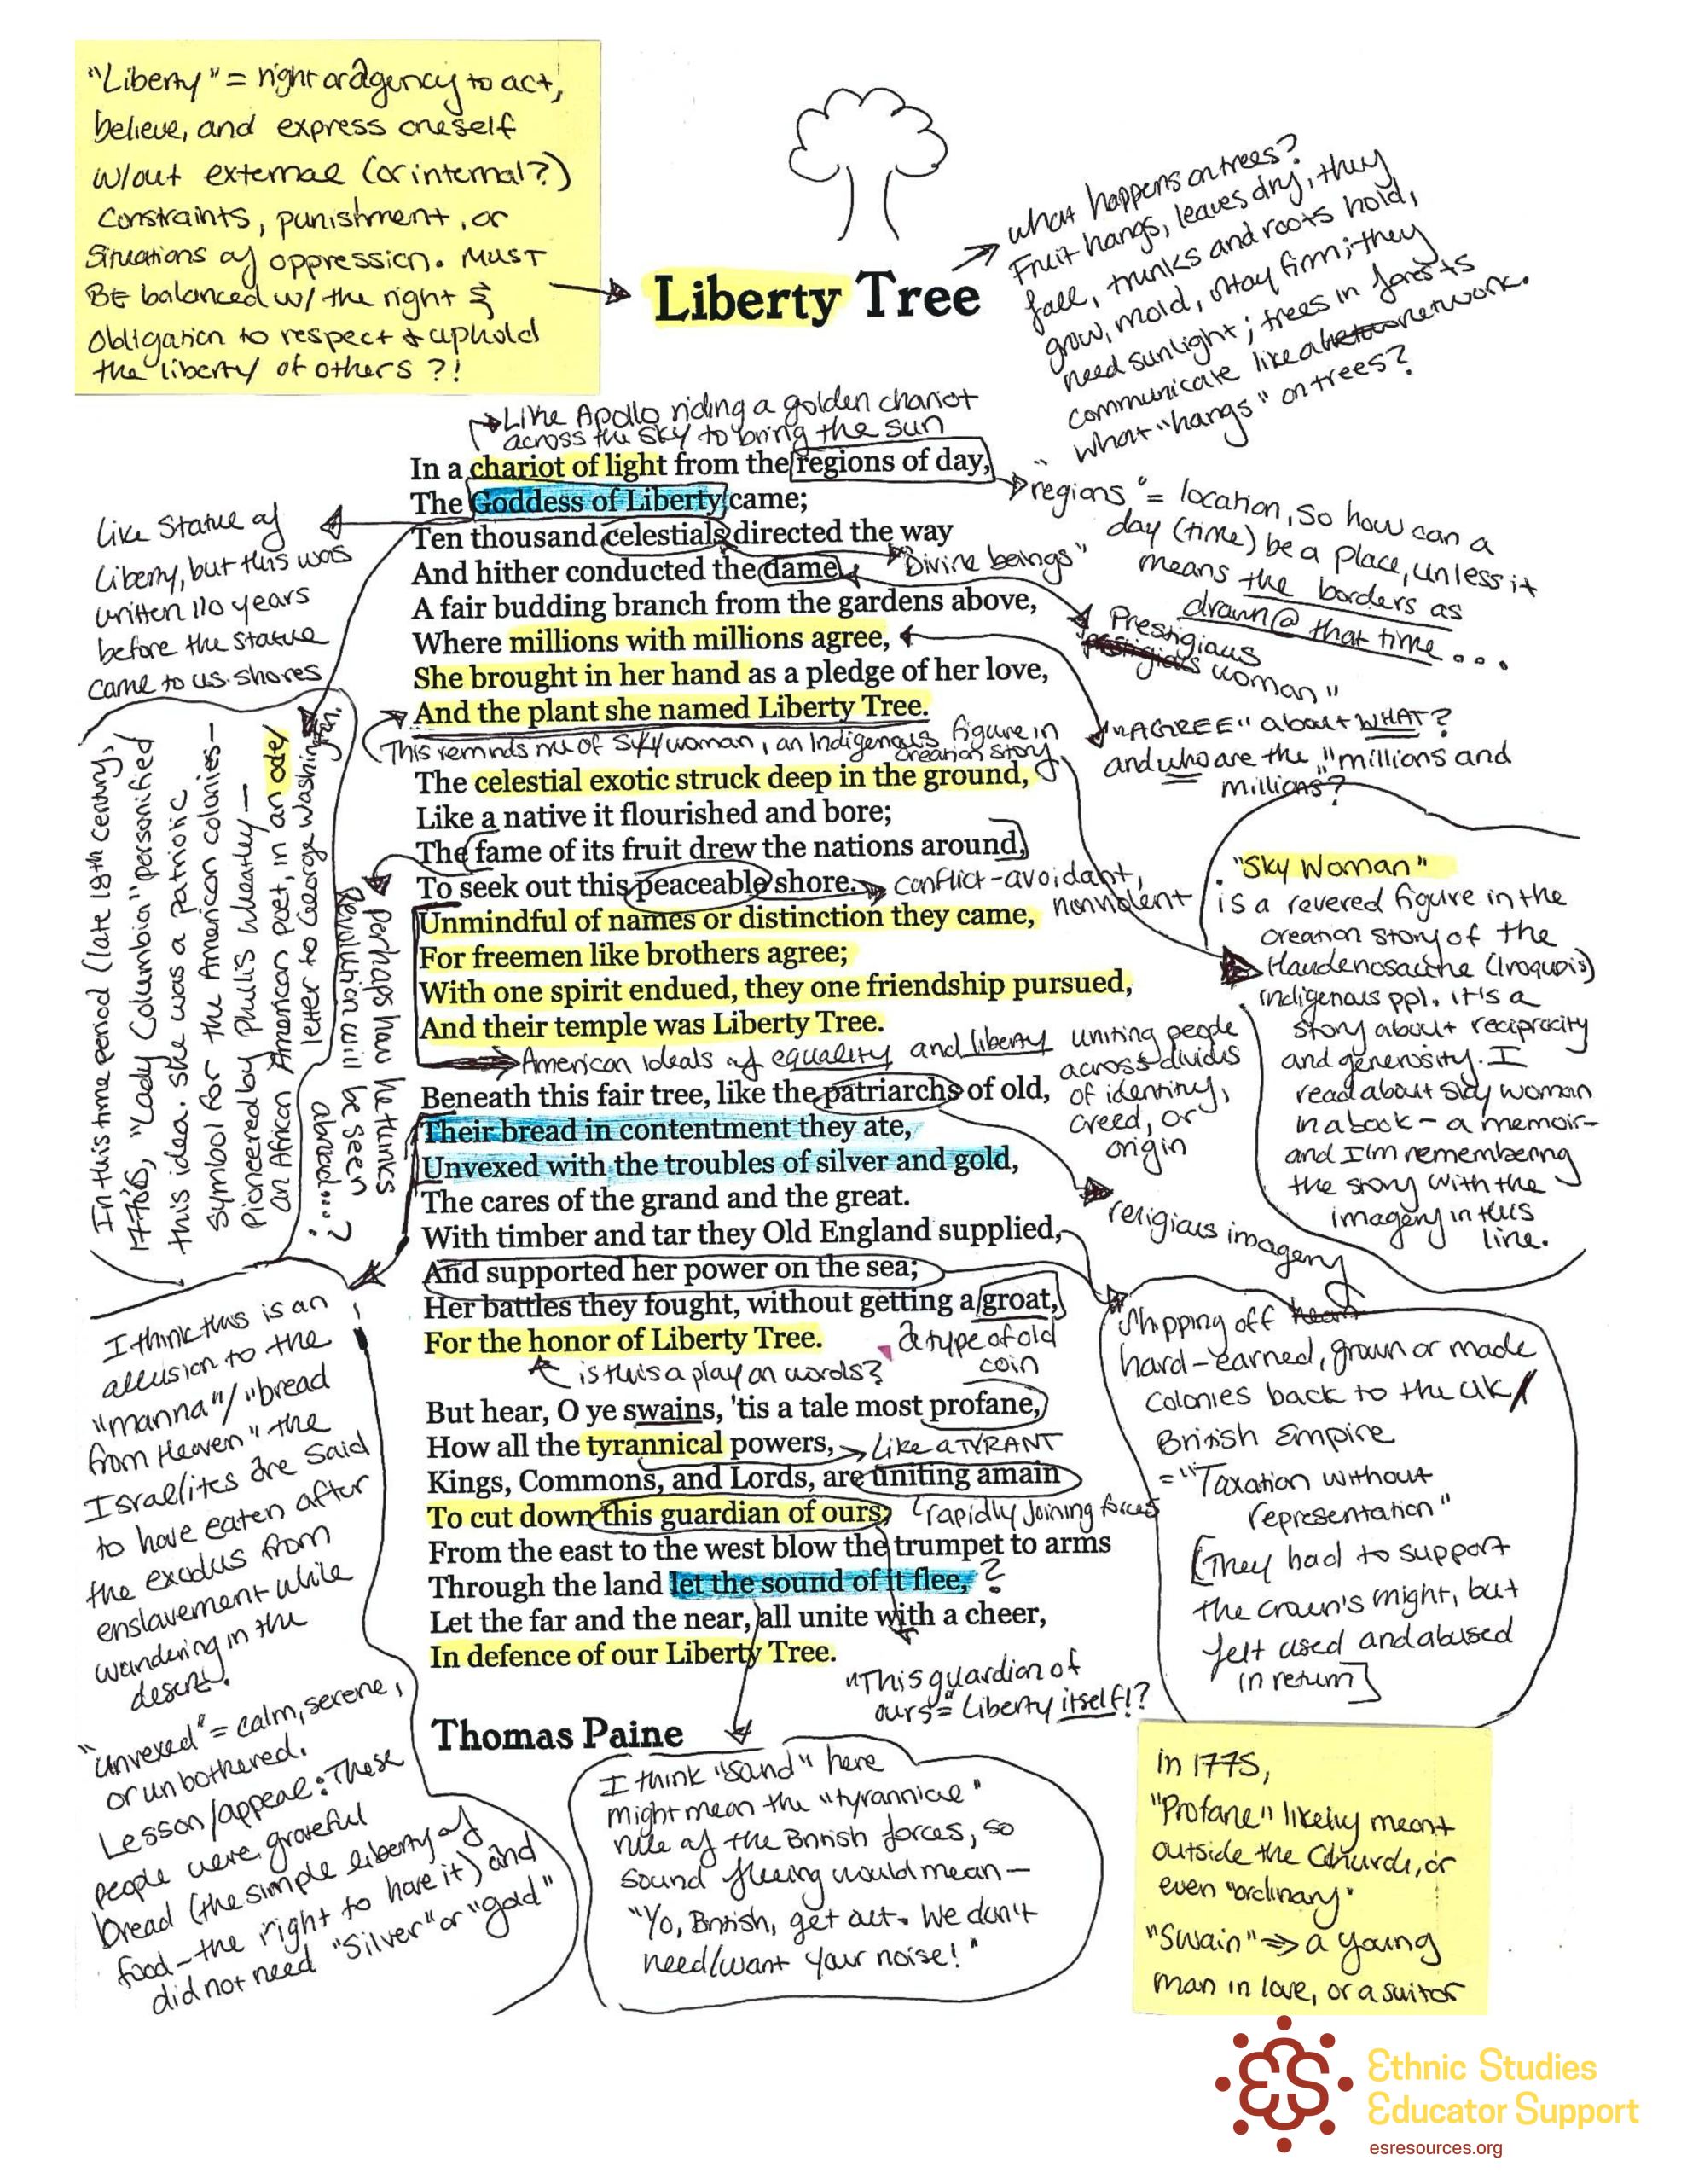 "Liberty" = right or agency to act,
believe, and express oneself
w/out external (or internal?)
constraints, punishment, or
situations of oppression. MUST
BE balanced w/ the right &
obligation to respect & uphold
the liberty of others?!
Liberty Tree
what happens on trees?
Fruit hangs, leaves dry, they
fall, trunks and roots hold,
grow, mold, stay firm; they
need sunlight; trees in forests
communicate like a network.
what "hangs" on trees?
Like Apollo riding a golden chariot
across the sky to bring the sun
In a chariot of light from the regions of day,
The Goddess of Liberty came;
Ten thousand celestials directed the way
And hither conducted the dame.
A fair budding branch from the gardens above,
Where millions with millions agree,
She brought in her hand as a pledge of her love,
And the plant she named Liberty Tree.
"regions" = location, so how can a
day (time) be a place, unless it
means the borders as
drawn @ that time...
"Divine beings"
"Prestigious
woman"
Like Statue of
Liberty, but this was
written 110 years
before the statue
came to US shores
This reminds me of Skywoman, an Indigenous figure in
creation story
"AGREE" about WHAT?
and who are the "millions and
millions?
The celestial exotic struck deep in the ground,
Like a native it flourished and bore;
The fame of its fruit drew the nations around,
To seek out this peaceable shore.
Unmindful of names or distinction they came,
For freemen like brothers agree;
With one spirit endued, they one friendship pursued,
And their temple was Liberty Tree.
conflict-avoidant,
nonviolent
In this time period (late 18th century,
1770s, "Lady Columbia" personified
this idea. She was a patriotic
symbol for the American colonies—
pioneered by Phillis Wheatley—
an African American poet, in an ode/
letter to George Washington.
perhaps how he thinks
Revolution will be seen
abroad...?
"Sky Woman"
is a revered figure in the
creation story of the
Haudenosauthe (Iroquois)
indigenous ppl. it's a
story about reciprocity
and generosity. I
read about Sky woman
in a book - a memoir-
and I'm remembering
the story with the
imagery in this
line.
American ideals of equality and liberty uniting people
across divides
of identity,
creed, or
origin
Beneath this fair tree, like the patriarchs of old,
Their bread in contentment they ate,
Unvexed with the troubles of silver and gold,
The cares of the grand and the great.
With timber and tar they Old England supplied,
And supported her power on the sea;
Her battles they fought, without getting a groat,
For the honor of Liberty Tree.
religious imagery
a type of old
coin
is this a play on words?
I think this is an
allusion to the
"manna"/"bread
from Heaven" the
Israelites are said
to have eaten after
the exodus from
enslavement while
wandering in the
desert.
Shipping off
hard-earned, grown or made
colonies back to the UK/
British Empire
= "Taxation without
representation"
[They had to support
the crown's might, but
felt used and abused
in return]
But hear, O ye swains, 'tis a tale most profane,
How all the tyrannical powers,
Kings, Commons, and Lords, are uniting amain
To cut down this guardian of ours;
From the east to the west blow the trumpet to arms
Through the land let the sound of it flee,
Let the far and the near, all unite with a cheer,
In defence of our Liberty Tree.
Like a TYRANT
rapidly joining forces
?
"This guardian of
ours" = Liberty itself!?
Thomas Paine
"unvexed" = calm, serene,
or unbothered.
Lesson/appeal: These
people were grateful
bread (the simple liberty of
food - the right to have it) and
did not need "silver" or "gold"
I think "sand" here
might mean the "tyrannical"
rule of the British forces, so
sound fleeing would mean—
"Yo, British, get out. We don't
need/want your noise!"
in 1775,
"Profane" likely meant
outside the Church, or
even "ordinary"
"Swain" => a young
man in love, or a suitor
ES
Ethnic Studies
Educator Support
esresources.org